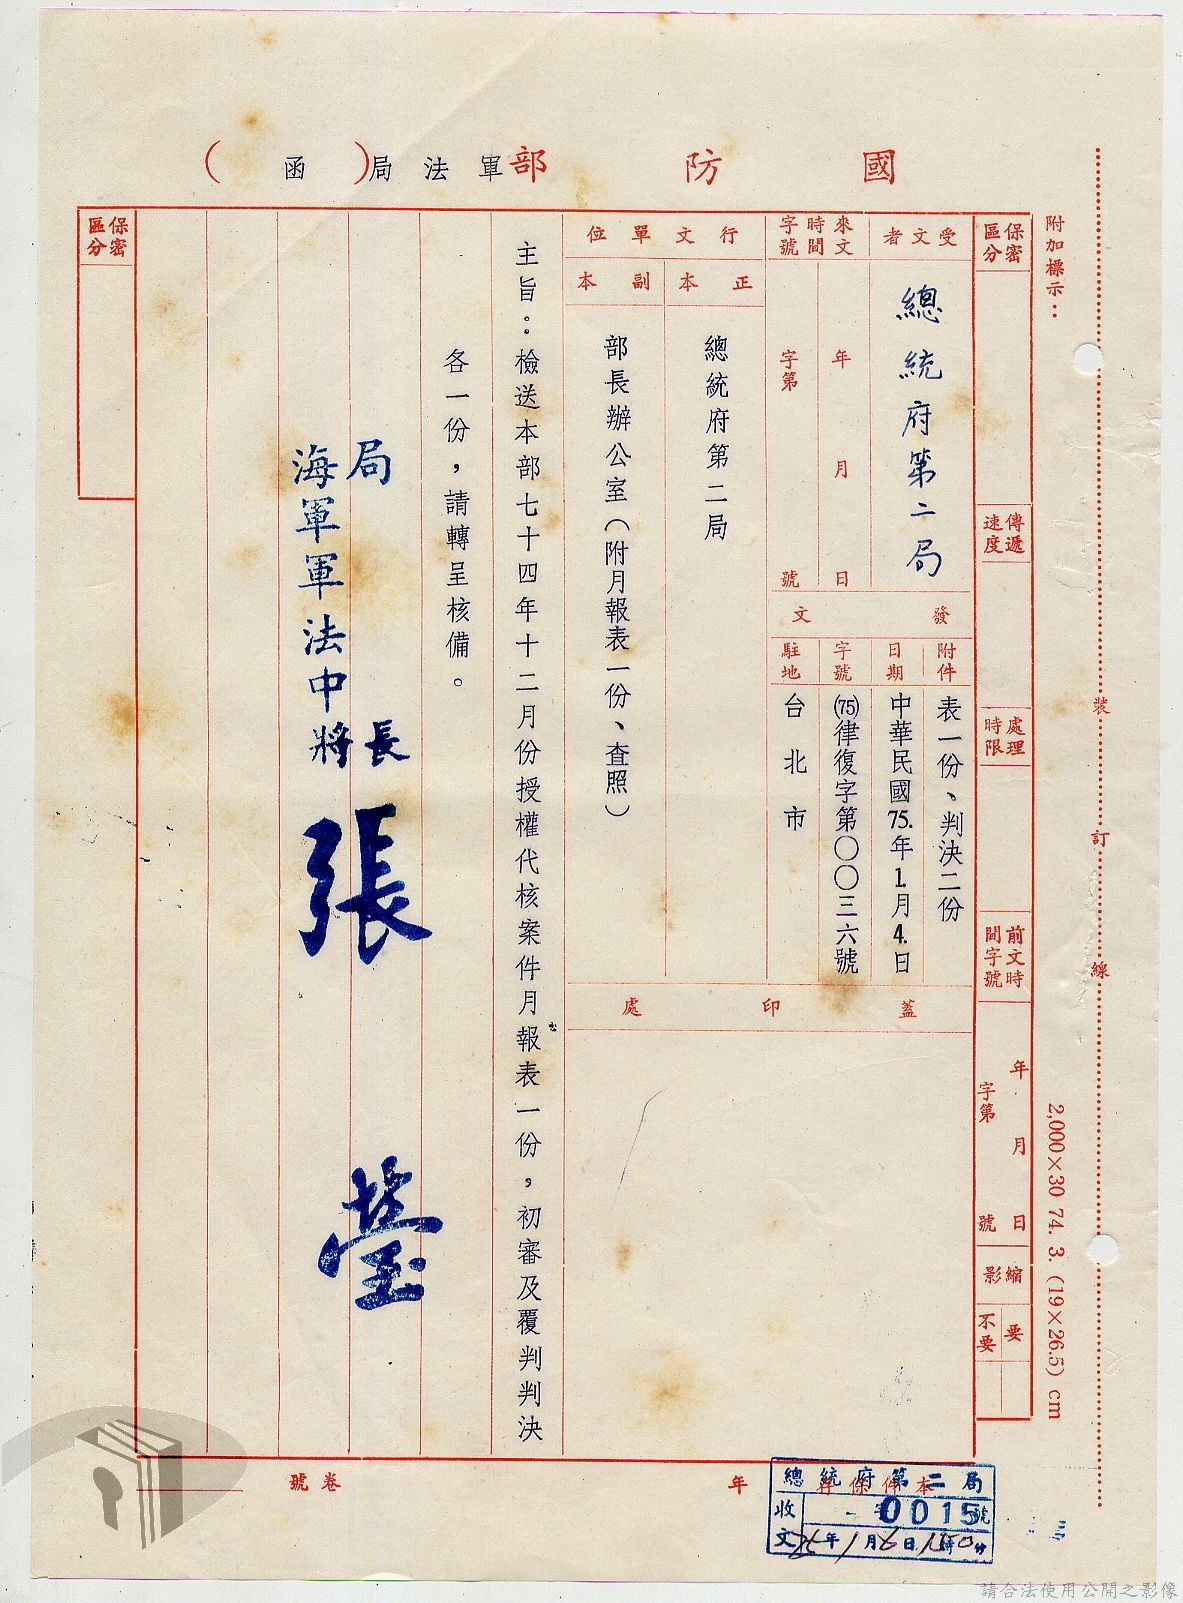 國防部軍法局(函)
附加標示：
裝訂線
2,000×30 74. 3. (19×26.5) cm
保密區分
傳遞速度
處理時限
前文時間字號
年月日
字第號
縮影
要
不要
受文者
總統府第二局
來文
時間
字號
年月日
字第號
發文
附件
表一份、判決二份
日期
中華民國75.年1.月4.日
字號
(75)律復字第〇〇三六號
駐地
台北市
行文單位
正本
總統府第二局
副本
部長辦公室（附月報表一份、查照）
蓋印處
主旨：檢送本部七十四年十二月份授權代核案件月報表一份，初審及覆判判決
各一份，請轉呈核備。
局長
海軍軍法中將
張
保密區分
本件保存年
卷號
總統府第二局
收文
0015號
年1月6日
時分
請合法使用公開之影像